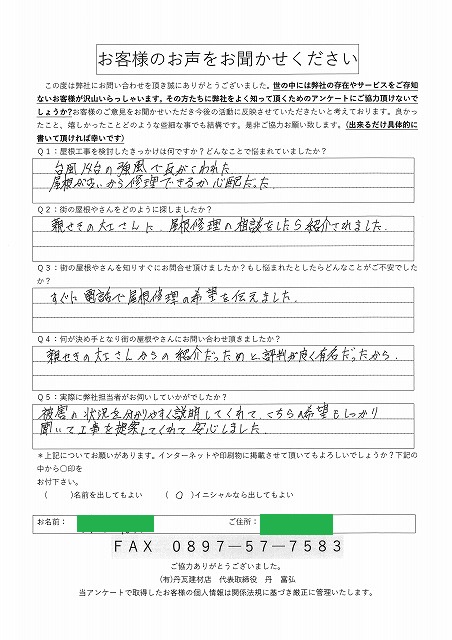 お客様のお声をお聞かせください
この度は弊社にお問い合わせを頂き誠にありがとうございました。世の中には弊社の存在やサービスをご存知
ないお客様が沢山いらっしゃいます。その方たちに弊社をよく知って頂くためのアンケートにご協力頂けないで
しょうか？お客様のご意見をお聞かせいただき今後の活動に反映させていただきたいと考えております。良かっ
たこと、嬉しかったことどのような些細な事でも結構です。是非ご協力お願い致します。（出来るだけ具体的に
書いて頂ければ幸いです）
Ｑ１：屋根工事を検討したきっかけは何ですか？どんなことで悩まれていましたか？
台風14台の強風で瓦がこわれた
屋根が古いから修理できるか心配だった.
Ｑ２：街の屋根やさんをどのように探しましたか？
親せきの大工さんに、屋根修理の相談をしたら紹介されました.
Ｑ３：街の屋根やさんを知りすぐにお問合せ頂けましたか？もし悩まれたとしたらどんなことがご不安でした
か？
すぐに電話で屋根修理の希望を伝えました.
Ｑ４：何が決め手となり街の屋根やさんにお問い合わせ頂きましたか？
親せきの大工さんからの紹介だっためと評判が良く有名だったから.
Ｑ５：実際に弊社担当者がお伺いしていかがでしたか？
被害の状況を分かりやすく説明してくれて、こちらの希望もしっかり
聞いて工事を提案してくれて安心しました
＊上記についてお願いがあります。インターネットや印刷物に掲載させて頂いてもよろしいでしょうか？下記の
中から〇印を
お付下さい。
（　　）名前を出してもよい　（ ○ ）イニシャルなら出してもよい
お名前：　ご住所：
ＦＡＸ　０８９７－５７－７５８３
ご協力ありがとうございました。
(有)丹瓦建材店　代表取締役　丹　富弘
当アンケートで取得したお客様の個人情報は関係法規に基づき厳正に管理いたします。